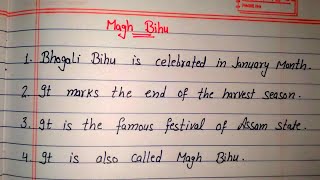 Magh Bihu
1. Bhogali Bihu is celebrated in January Month.
2. It marks the end of the harvest season.
3. It is the famous festival of Assam state.
4. It is also called Magh Bihu.